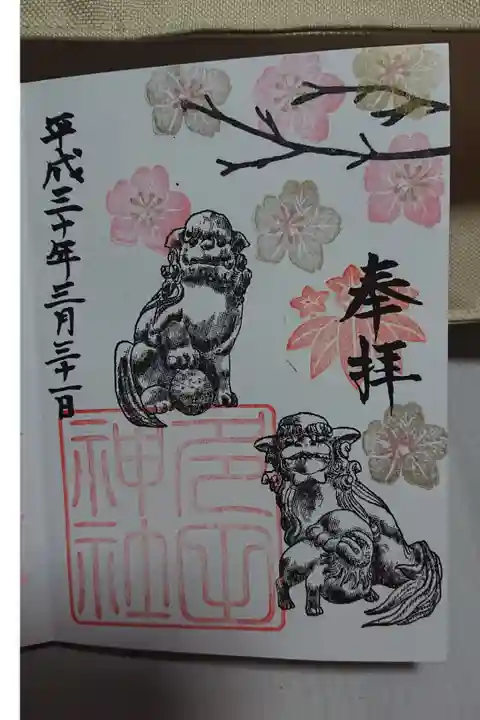 奉拝
神社
平成三十年三月三十一日